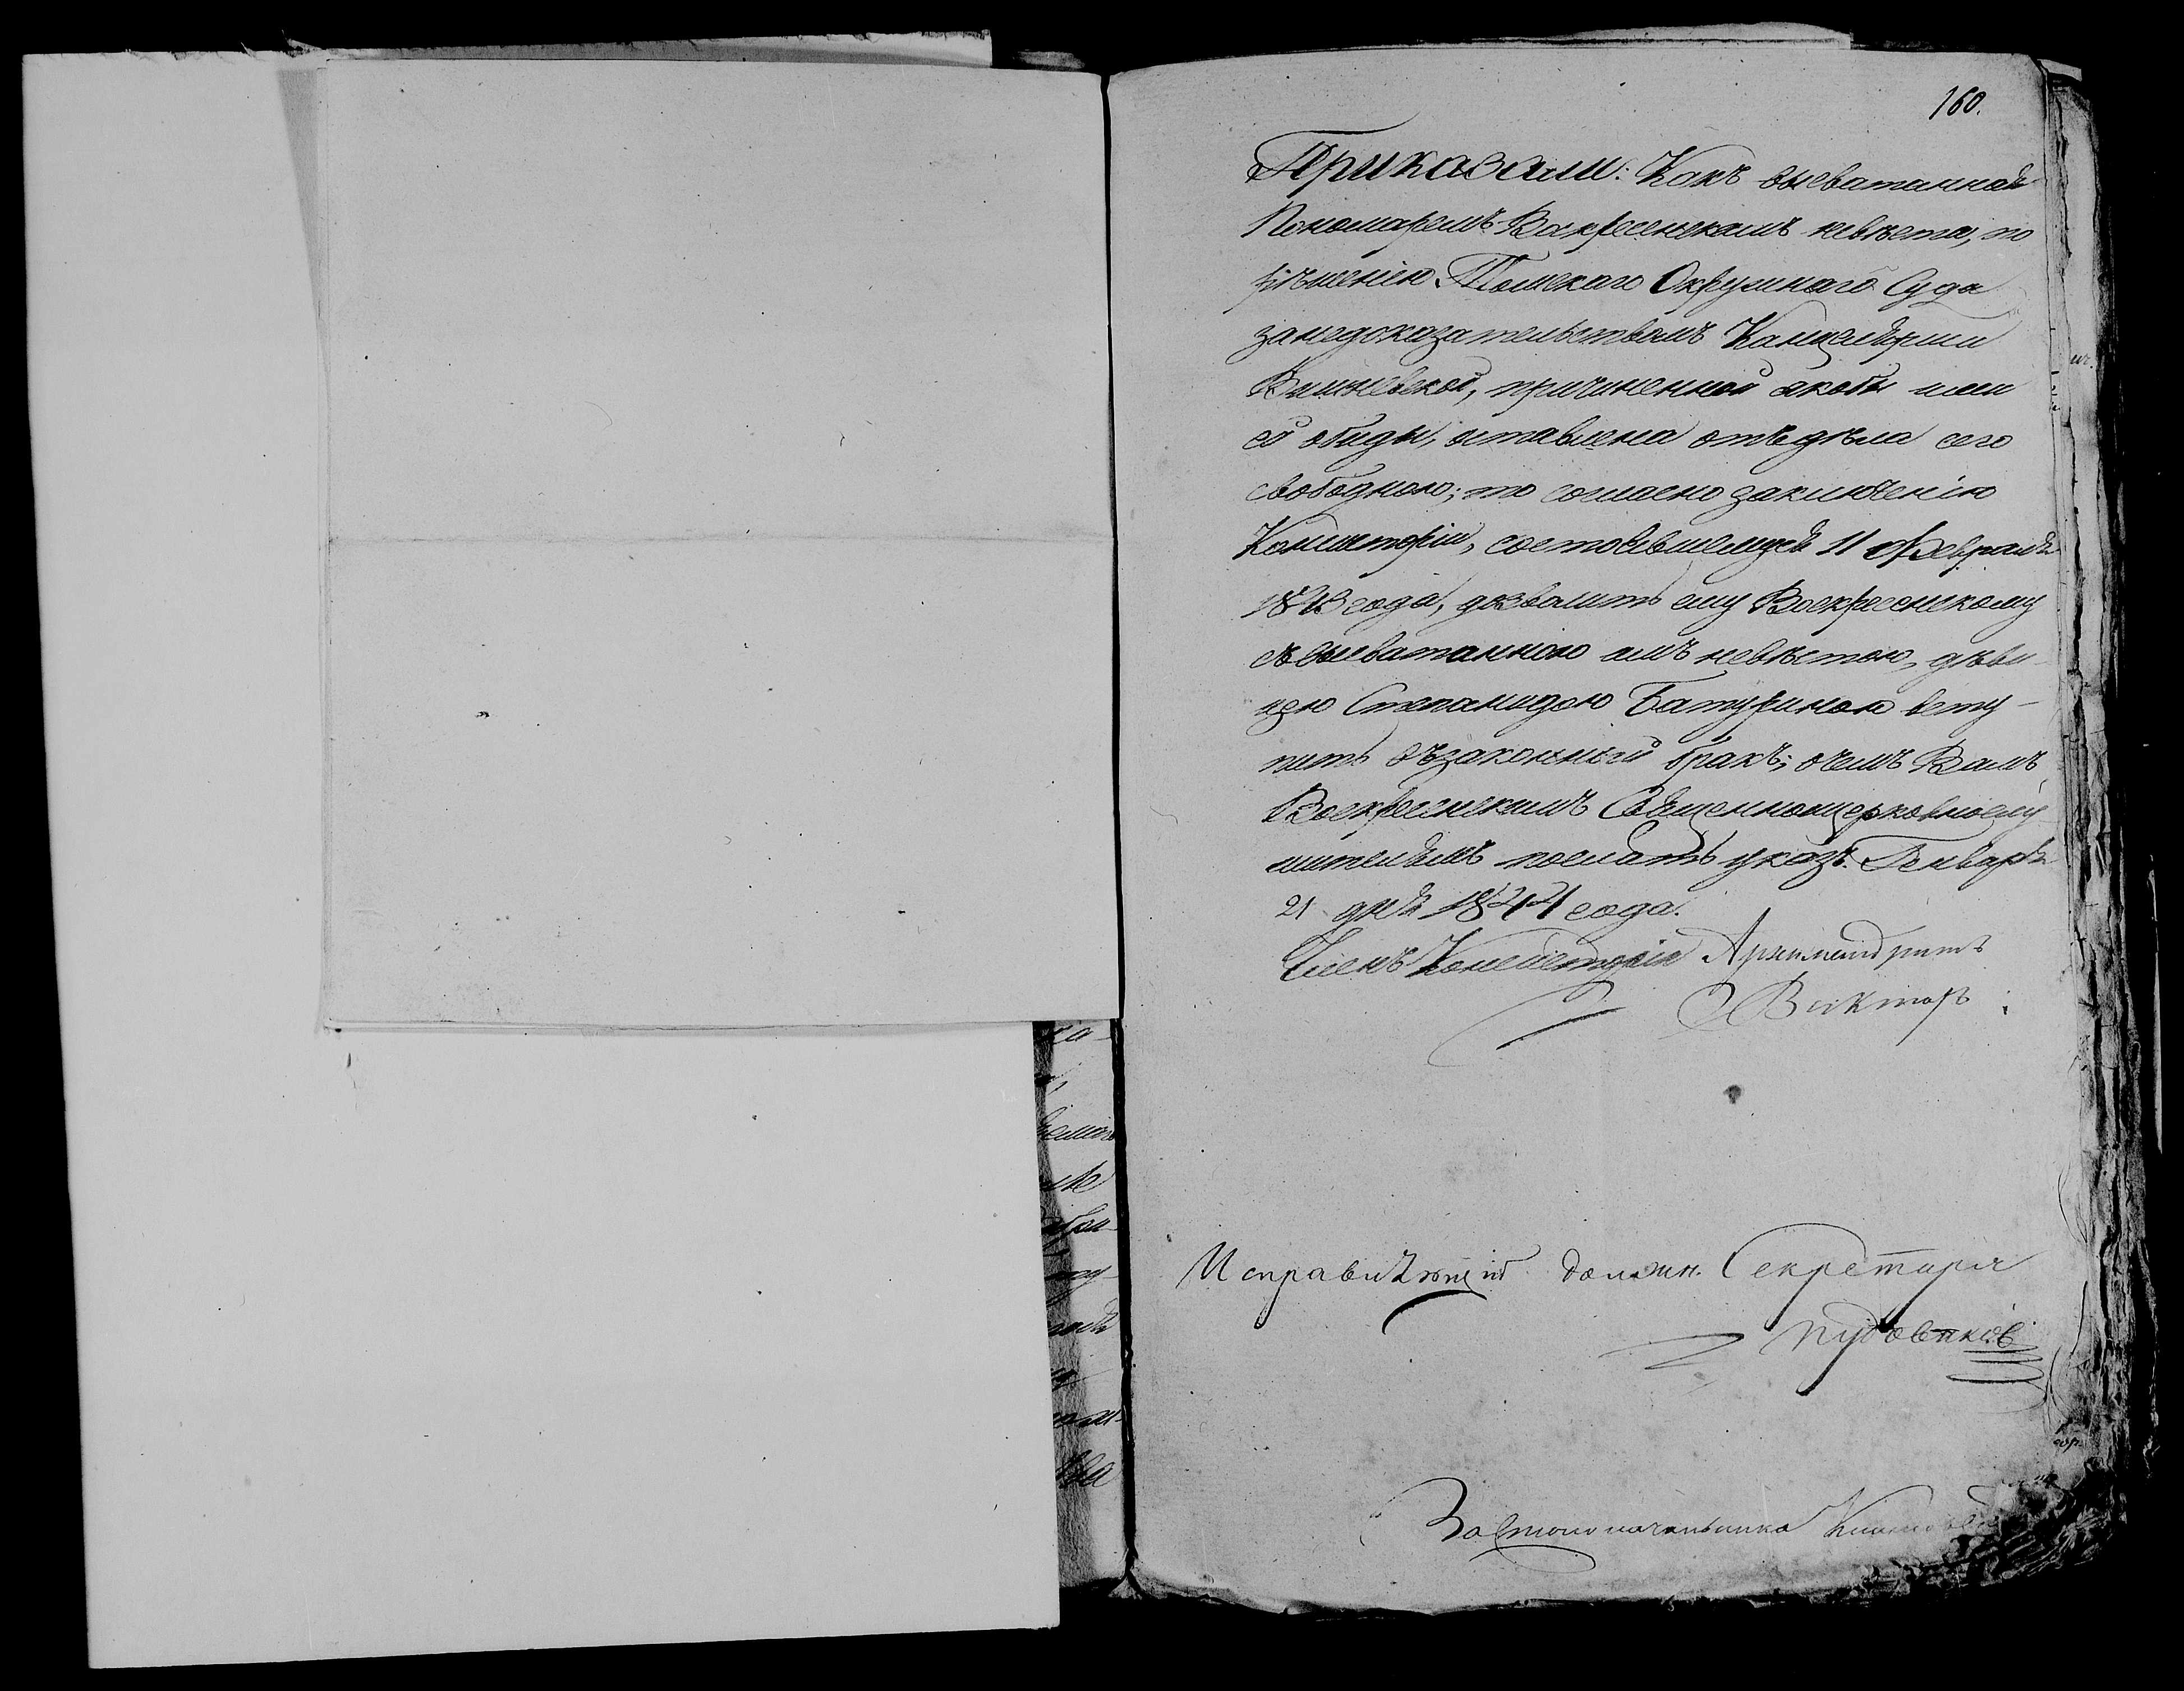 160.
Приказали: Какъ высватанная
Пономаремъ Воскресенскимъ невѣста, по
рѣшенію Томскаго Окружнаго Суда
за недоказательствомъ Канцелярши
Вишневской, причиненной якобы ими
ей обиды, оставлена отъ дѣла сего
свободною; то согласно заключенію
Консисторіи, состоявшемуся 11 Февраля
1843 года, дозволить ему Воскресенскому
съ высватанною имъ невѣстою, дѣви-
цею Степанидою Батуриною всту-
пить въ законный бракъ; о чемъ Вамъ
Воскресенскимъ Священноцерковнослу-
жителямъ послать указъ. Генваря
21 дня 1844 года.
Членъ Консисторіи Архимандритъ
Викторъ
Исправляющій должн. Секретаря
Пудовиковъ
За Столоначальника